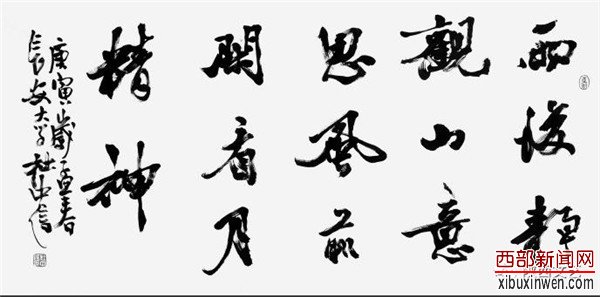 雨後靜
觀山意
思風前
閑看月
精神
庚寅歲孟春
长安大学杜中信
西部新闻网
xibuxinwen.com